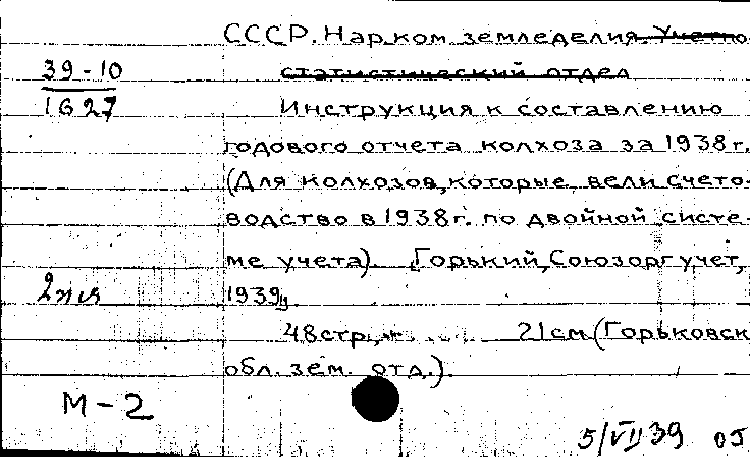 СССР. Нар.ком. земледелия Учетно-
статистический отдел
39-10
1627
Инструкция к составлению
годового отчета колхоза за 1938 г.
(Для колхозов, которые вели счето-
водство в 1938 г. по двойной систе-
ме учета) Горький, Союзоргучет,
2
1939
48 стр., 21 см (Горьковск
обл. зем. отд.).
М-2
5/VII 39